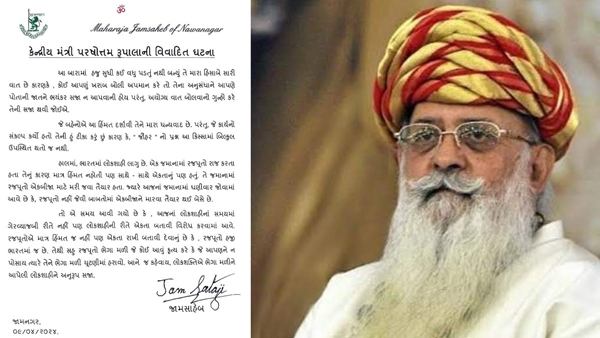 ૐ
Maharaja Jamsaheb of Nawanagar
કેન્દ્રીય મંત્રી પરષોત્તમ રૂપાલાની વિવાદિત ઘટના
આ બારામાં હજી સુધી કઈ વધુ પડતું નથી બન્યું તે મારા હિસાબે સારી
વાત છે કારણકે , કોઈ આપણું ખરાબ બોલી અપમાન કરે તો તેના અનુસંધાને આપણે
પોતાની જાતને ભયંકર સજા ન આપવાની હોય પરંતુ, અયોગ્ય વાત બોલવાનો ગુન્હો કરે
તેની સજા થવી જોઈએ.
જે બહેનોએ આ હિંમત દર્શાવી તેને મારા ધન્યવાદ છે. પરંતુ, જે કાર્યનો
સંકલ્પ કર્યો હતો તેની હું ટીકા કરું છું કારણ કે, " જૌહર " નો પ્રશ્ન આ કિસ્સામાં બિલકુલ
ઉપસ્થિત થતો જ નથી.
હાલમાં, ભારતમાં લોકશાહી લાગુ છે. એક જમાનામાં રજપૂતો રાજ કરતા
હતા તેનું કારણ માત્ર હિંમત નહોતી પણ સાથે - સાથે એકતાનું પણ હતું. તે જમાનામાં
રજપૂતો એકબીજા માટે મરી જવા તૈયાર હતા. જ્યારે આજનાં જમાનામાં ઘણીવાર જોવામાં
આવે છે કે, રજપૂતો નહીં જેવી બાબતોમાં એકબીજાને મારવા તૈયાર થઈ બેસે છે.
તો એ સમય આવી ગયો છે કે , આજનાં લોકશાહીનાં સમયમાં
ગેરવ્યાજબી રીતે નહીં પણ લોકશાહીની રીતે એકતા બતાવી વિરોધ કરવામાં આવે.
રજપૂતોએ માત્ર હિંમત જ નહીં પણ એકતા રાખી બતાવી દેવાનું છે કે , રજપૂતો હજી
ભારતમાં જ છે. તેથી સહુ રજપૂતો ભેગા મળી જે કોઈ આવું કૃત્ય કરે કે જે આપણને ન
પોસાય ત્યારે તેને ભેગા મળી ચૂંટણીમાં હરાવો. આને જ કહેવાય, લોકશક્તિએ ભેગા મળીને
આપેલી લોકશાહીને અનુરૂપ સજા.
Jam Sataji
જામસાહેબ
જામનગર,
૦૯/૦૪/૨૦૨૪.